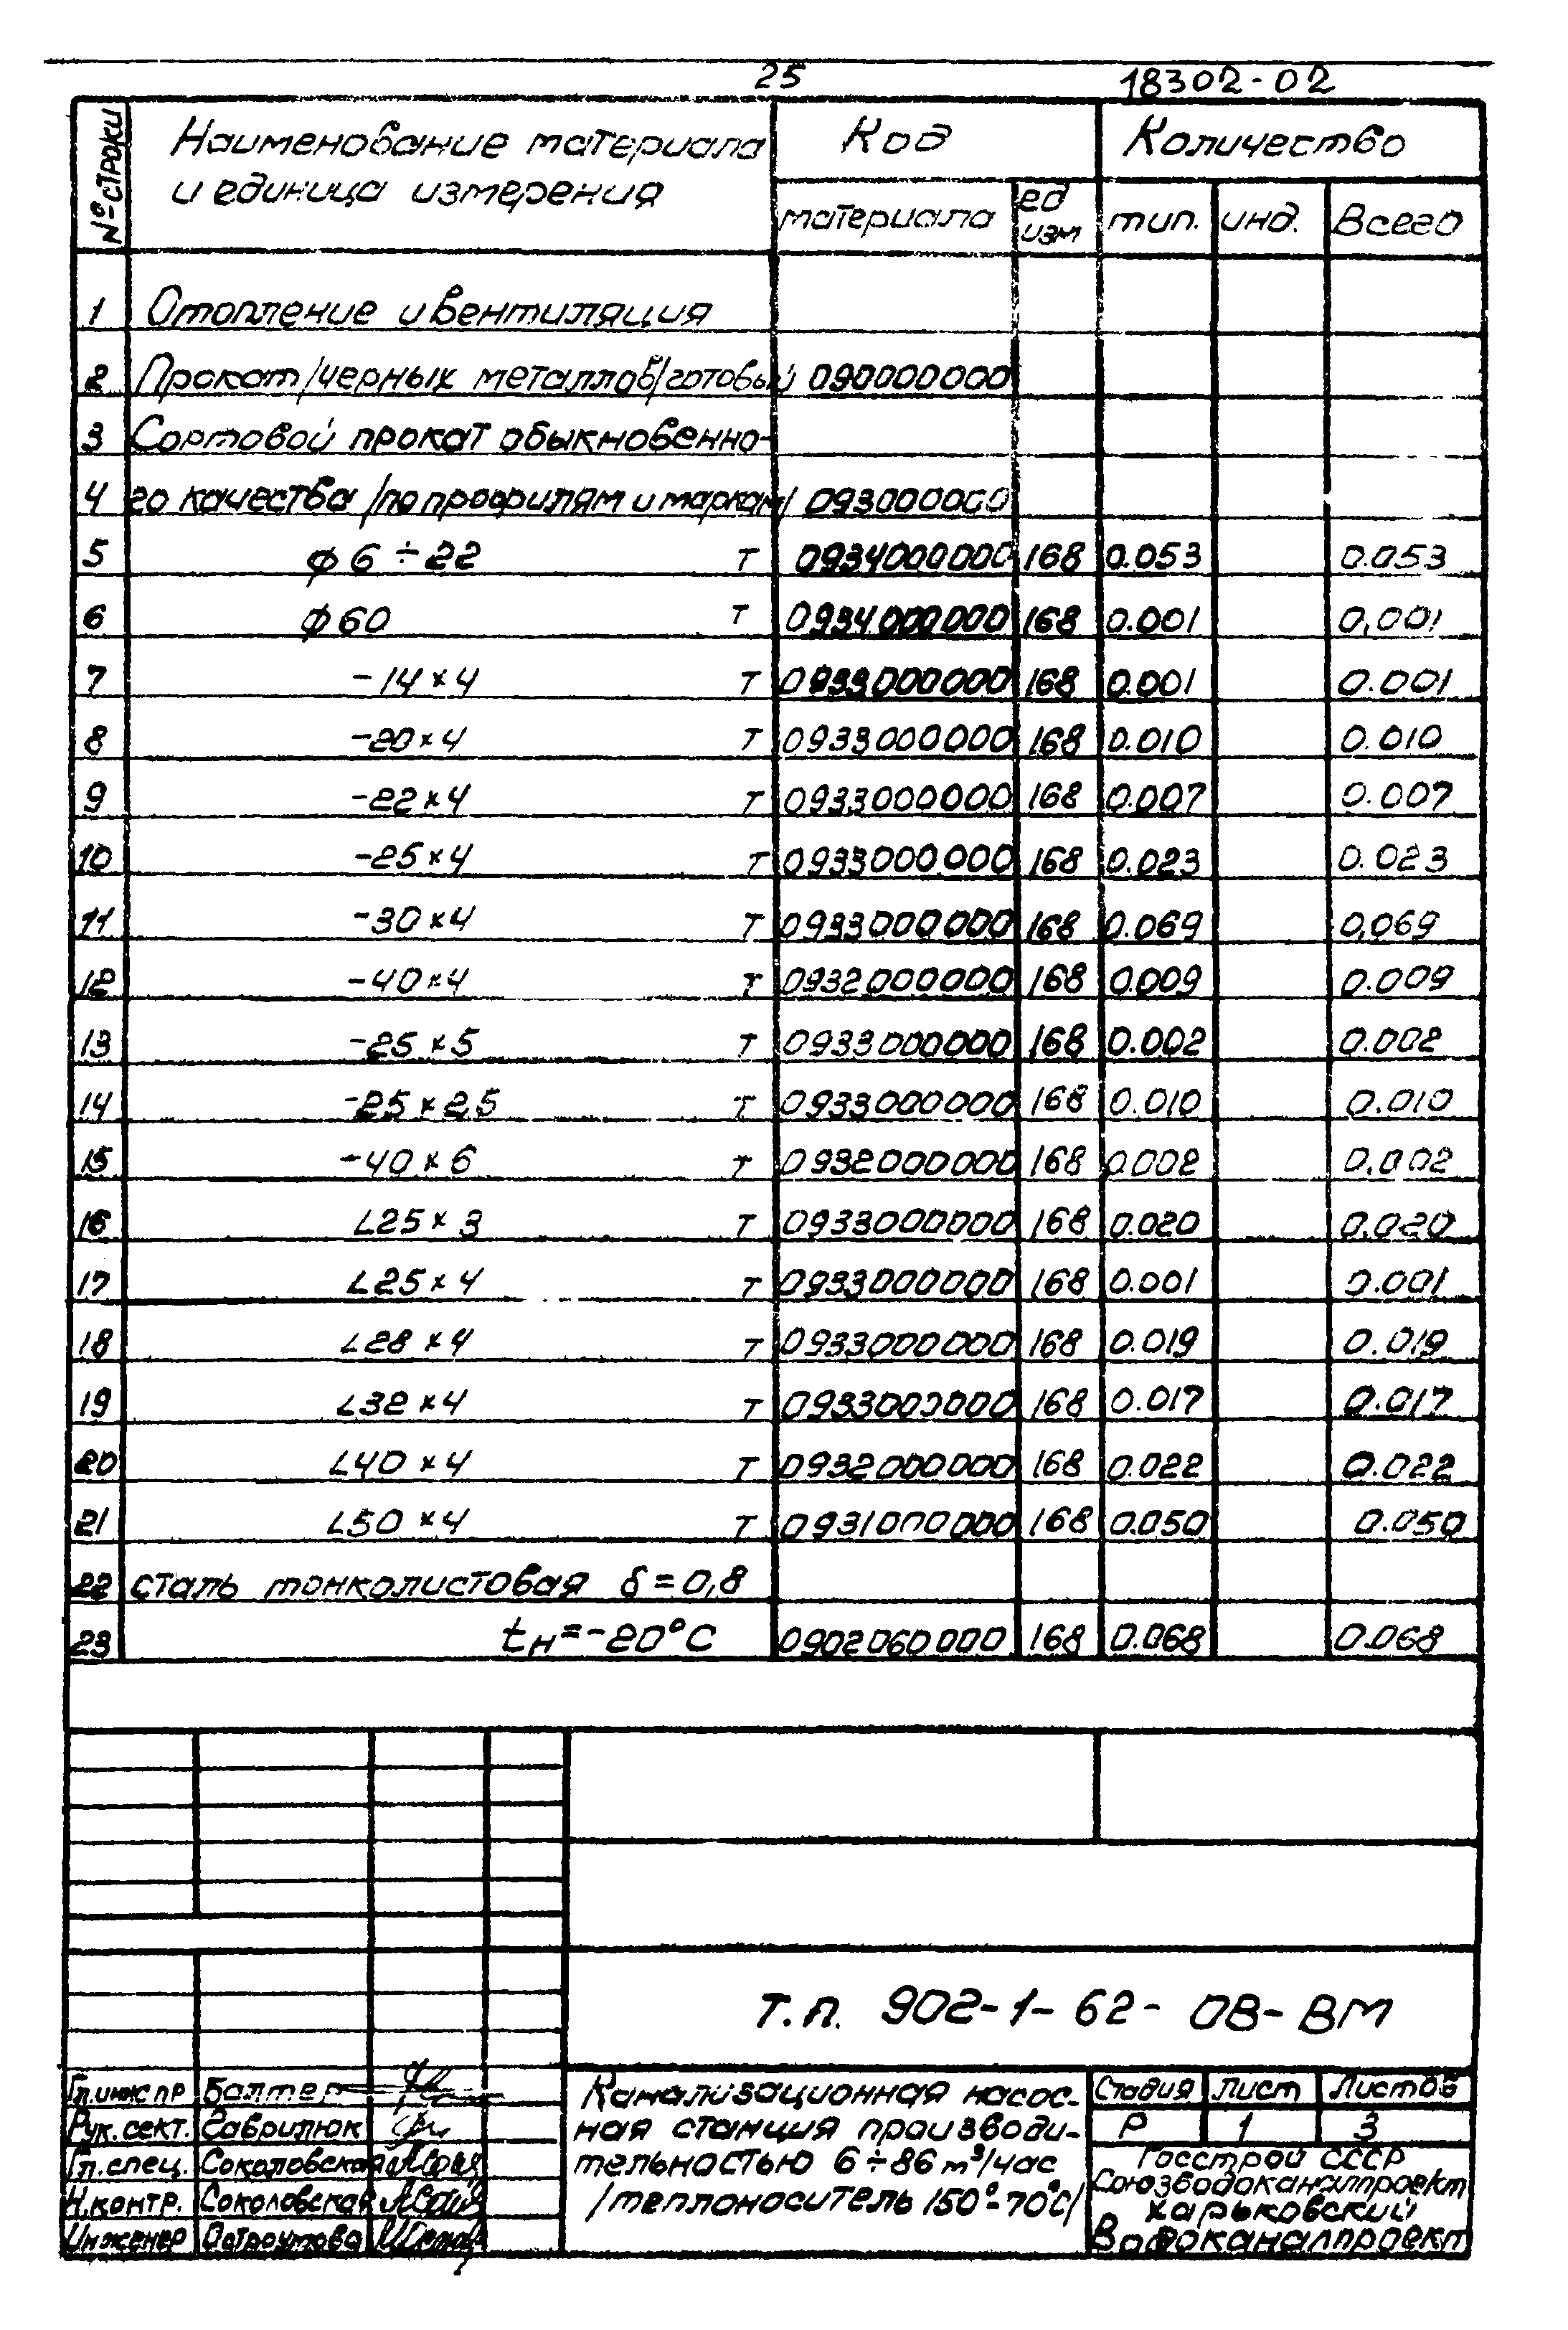 25 18302-02
№ строки Наименование материала и единица измерения Код Количество
материала ед изм тип. инд. Всего
1 Отопление и вентиляция
2 Прокат /черных металлов/ готовый 090000000
3 Сортовой прокат обыкновенно-
4 го качества /по профилям и маркам/ 093000000
5 ϕ 6 ÷ 22 т 0934000000 168 0.053 0.053
6 ϕ 60 т 0934000000 168 0.001 0,001
7 -14×4 т 0933000000 168 0.001 0.001
8 -20×4 т 0933000000 168 0.010 0.010
9 -22×4 т 0933000000 168 0.007 0.007
10 -25×4 т 0933000000 168 0.023 0.023
11 -30×4 т 0933000000 168 0.069 0,069
12 -40×4 т 0932000000 168 0.009 0.009
13 -25×5 т 0933000000 168 0.002 0.002
14 -25×2,5 т 0933000000 168 0.010 0.010
15 -40×6 т 0932000000 168 0.002 0.002
16 ∠25×3 т 0933000000 168 0.020 0.020
17 ∠25×4 т 0933000000 168 0.001 0.001
18 ∠28×4 т 0933000000 168 0.019 0.019
19 ∠32×4 т 0933000000 168 0.017 0.017
20 ∠40×4 т 0932000000 168 0.022 0.022
21 ∠50×4 т 0931000000 168 0.050 0.050
22 сталь тонколистовая δ = 0,8
23 tн = -20°С 0902060000 168 0.068 0.068
т.п. 902-1-62- ОВ-ВМ
Гл.инж пр Балтер
Рук. сект. Гаврилюк
Гл. спец. Соколовская
Н.контр. Соколовская
Инженер Остроумова
Канализационная насос-
ная станция производи-
тельностью 6÷86 м³/час
/теплоноситель 150°-70°С/
Стадия Лист Листов
Р 1 3
Госстрой СССР
Союзводоканалпроект
Харьковский
Водоканалпроект